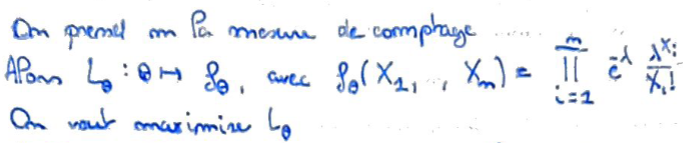 On prend m la mesure de comptage
Alors L_θ : θ ↦ f_θ, avec f_θ(X_1, , X_n) = ∏_{i=1}^{n} e^{-λ} λ^{X_i} / X_i!
On veut maximiser L_θ